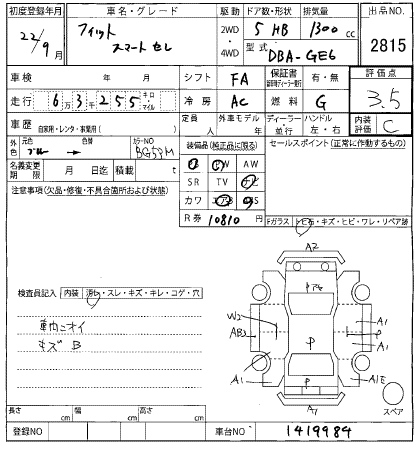 初度登録年月 車名・グレード 駆動 ドア数・形状 排気量 出品NO
22/9月 フィット スマート セレ 2WD・4WD 5 HB 1300 cc 2815
型式 DBA-GE6
車検 年 月 シフト FA 保証書 有・無 評価点
走行 6万3千255 キロ・マイル 冷房 AC 燃料 G 3.5
車歴 自家用・レンタ・事業用( ) 定員 人 外車モデル 年 ディーラー 並行 ハンドル 左・右 内装評価 C
外色 元色 ブルー 色替 カラーNO BG59M 装備品(純正品に限る) セールスポイント(正常に作動するもの)
名義変更期限 月 日迄 積載 t PS PW AW
注意事項(欠品・修復・不具合箇所および状態) SR TV ナビ
カワ エアB
R券 10810 円
Fガラス トビ石・キズ・ヒビ・ワレ・リペア跡
A2
検査員記入 内装 汚れ・スレ・キズ・キレ・コゲ・穴
車内ニオイ
キズ B
W2
AB3
A1
P
A1
P
A1
A1E
P
A1
スペア
長さ cm 幅 cm 高さ cm
登録NO 車台NO 1419984